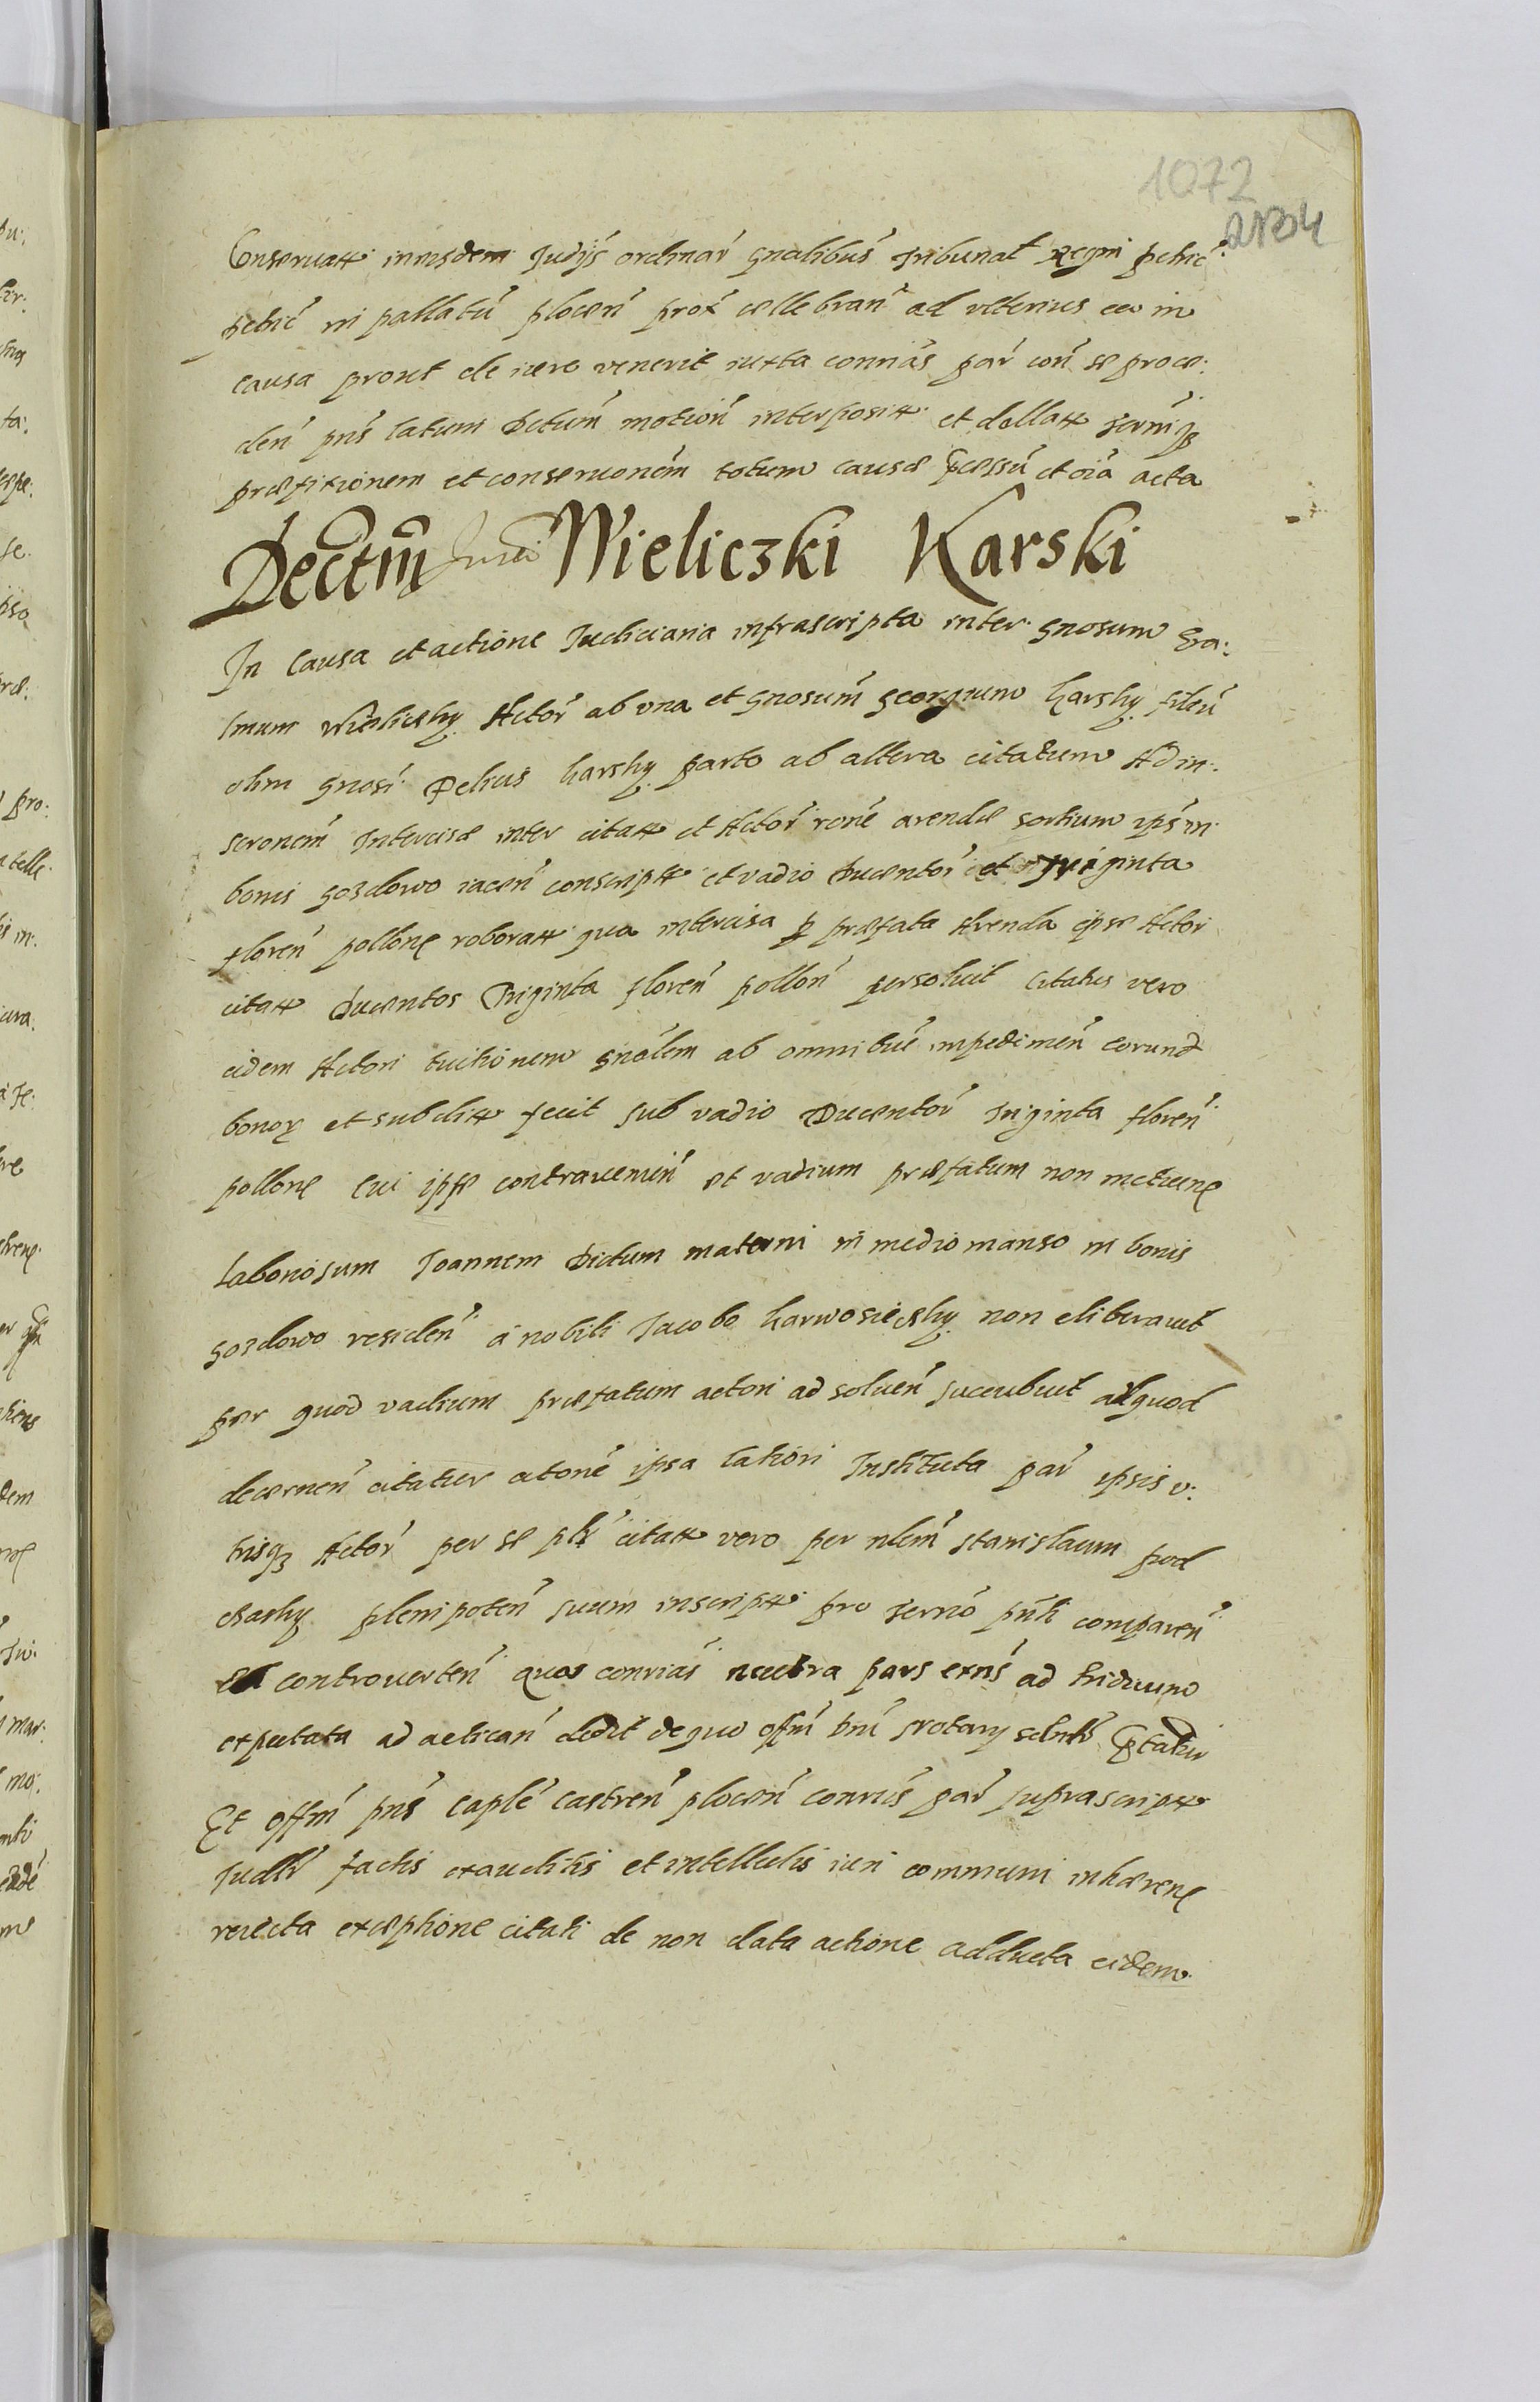 1072
Conservatt iniisdem Judijs ordinar gnalibus Tribunal Regni petric
petric in pallatu plocen prox cellebran ad ulterius ea in
causa prout de iure venerit iuxta connias par con se proce:
den pns latum Dctum motion interposit et dellatt termi
præfixionem et conseruonem totum causæ pcessu et oia acta
Dectm Wieliczki Karski
In Causa et actione Judiciaria infrascripta inter gnosum Era:
smum Wielicsky Actor ab una et gnosum georgium karsky filiu
olim gnosi Petrus karsky parte ab altera citatum Ad in:
scronem Intercisæ inter citatt et Actor rone arendæ sortium ips in
bonis gozdowo iacen conscriptt et vadio Ducentor et triginta
floren pollone roboratt qua intercisa p præfata Arenda ipse Actor
citatt Ducentos Triginta floren pollon persoluit Citatus vero
eidem Actori tuitionem gnalem ab omnibus impedimen eorund
bonor et subditt fecit sub vadio Ducentor Triginta floren
pollone Cui ipse contravenien et vadium præfatum non metuens
Laboriosum Joannem Dictum materni in medio manso in bonis
gozdowo residen a nobili Jacobo karwosiecsky non eliberavit
per quod vadium præfatum actori ad soluen succubuit ad quod
decernen citatur citone ipsa latiori Instituta par ipsis u:
trisq3 Actor per se plr citatt vero per nlem stanislaum pod
charsky plenipoten suum inscriptt pro termo pnti comparen
et controverten quas convias neutra pars exns ad triduum
expectata ad aetican dedit de quo offm bni protary sclutr
Et offm pns Caple castren plocen convis par suprascriptt
Judlr factis exauditis et intellectis iuri communi inhærens
reiecta exceptione citati de non data actione adducta eidem